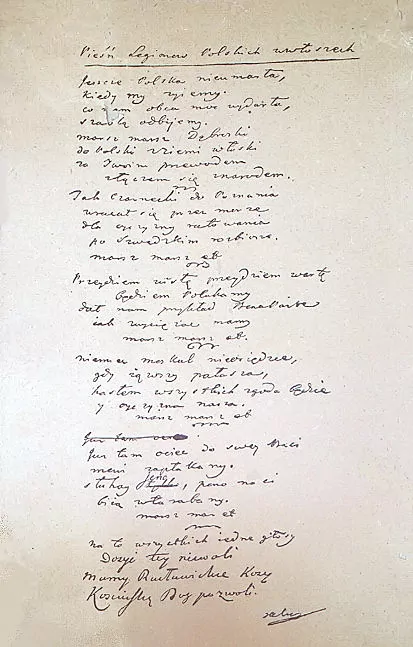 Pieśń Legionow Polskich wewłoszech
Jeszcze Polska nieumarła,
Kiedy my zyiemy.
co nam obca moc wydarła,
szablą odbijemy.
marsz marsz Dąbroski
do Polski zziemi włoski
za Twoim przewodem
złączem się znarodem.
Jak Czarnecki do Poznania
wracał się przez morze
dla oyczyzny ratowania
po Szwedzkim rozbiorze.
marsz marsz etc
Przeydziem wisłę przeydziem wartę
będziem Polakamy
dał nam przykład Bonaparte
jak zwyciężac mamy
marsz marsz etc.
niemiec moskal nieosiędzie,
gdy iąwszy pałasza,
hasłem wszystkich zgoda będzie
y oyczyzna nasza.
marsz marsz etc
Już tam ociec
Już tam ociec do swey Basi
mowi zapłakany.
słuchay jeno, pono nasi
biią wtarabany.
marsz mar etc
na to wszystkich iedne głosy
Dosyć tey niewoli
mamy Racławickie Kosy
Kosciuszkę Bog pozwoli.